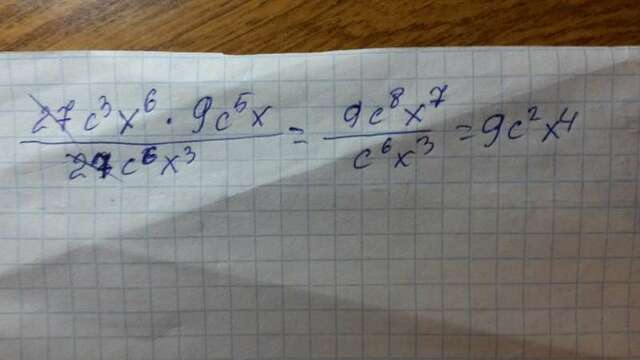 27c³x⁶ · 9c⁵x / 27c⁶x³ = 9c⁸x⁷ / c⁶x³ = 9c²x⁴